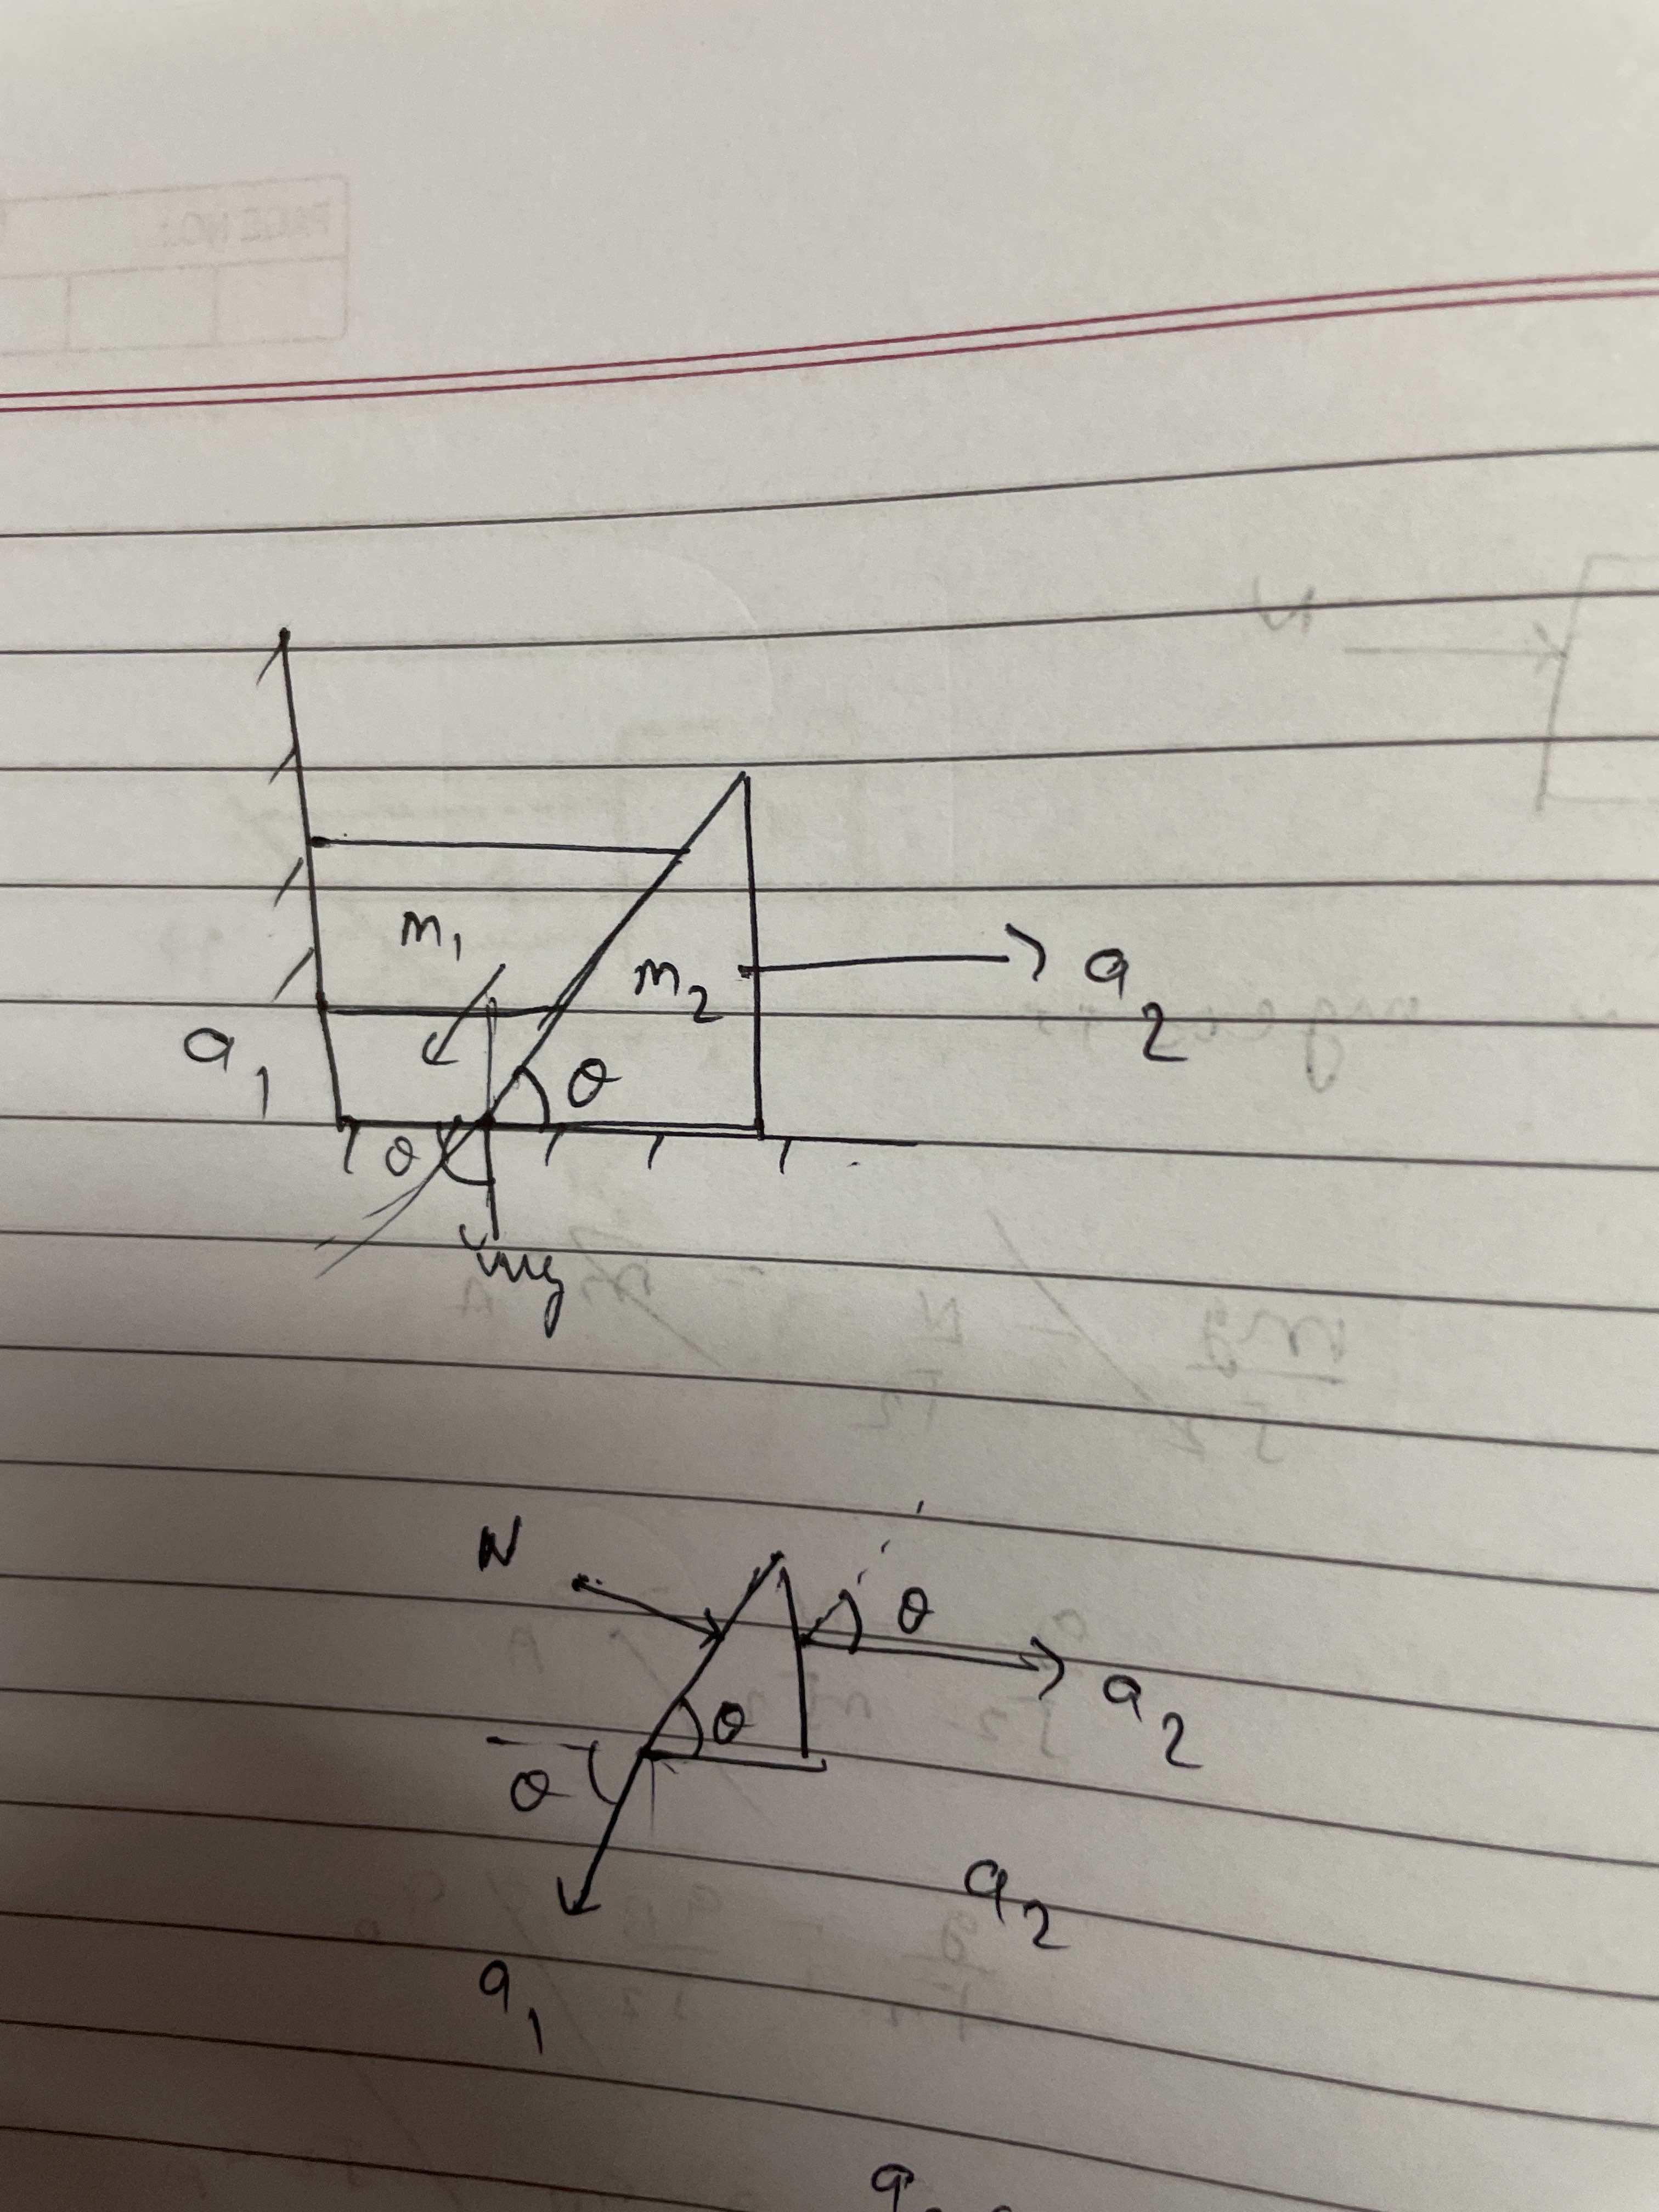 m₁
m₂
a₂
a₁
θ
θ
mg
N
θ
a₂
θ
θ
a₂
a₁